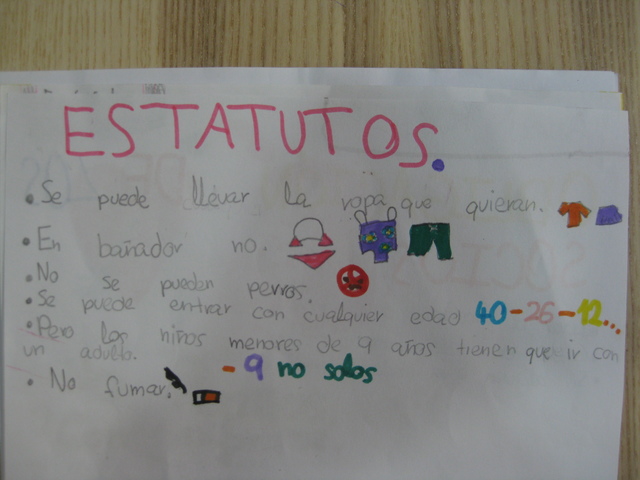 ESTATUTOS.
• Se puede llevar la ropa que quieran.
• En bañador no.
• No se pueden perros.
• Se puede entrar con cualquier edad 40-26-12...
• Pero los niños menores de 9 años tienen que ir con
un adulto.
-9 no solos
• No fumar.